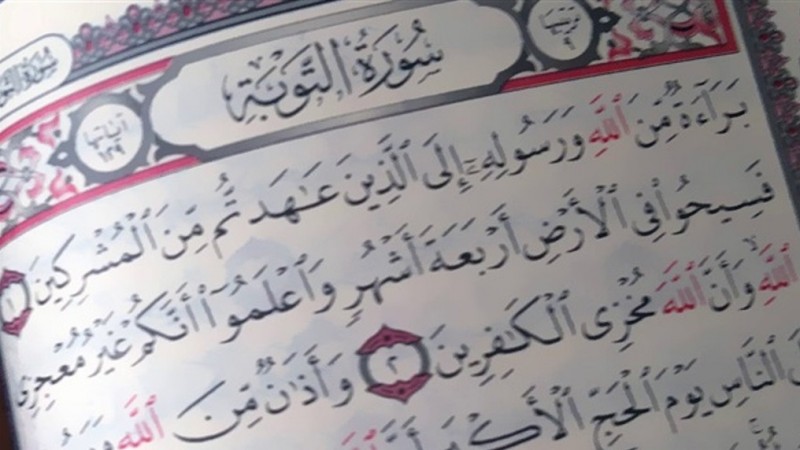 سُورَةُ التَّوْبَةِ
ترتيبها ٩
آياتها ١٢٩
بَرَآءَةٌ مِّنَ ٱللَّهِ وَرَسُولِهِۦٓ إِلَى ٱلَّذِينَ عَـٰهَدتُّم مِّنَ ٱلْمُشْرِكِينَ ١
فَسِيحُوا۟ فِى ٱلْأَرْضِ أَرْبَعَةَ أَشْهُرٍ وَٱعْلَمُوٓا۟ أَنَّكُمْ غَيْرُ مُعْجِزِى
ٱللَّهِ ۙ وَأَنَّ ٱللَّهَ مُخْزِى ٱلْكَـٰفِرِينَ ٢ وَأَذَٰنٌ مِّنَ ٱللَّهِ
ٱلنَّاسِ يَوْمَ ٱلْحَجِّ ٱلْأَكْبَرِ أَنَّ